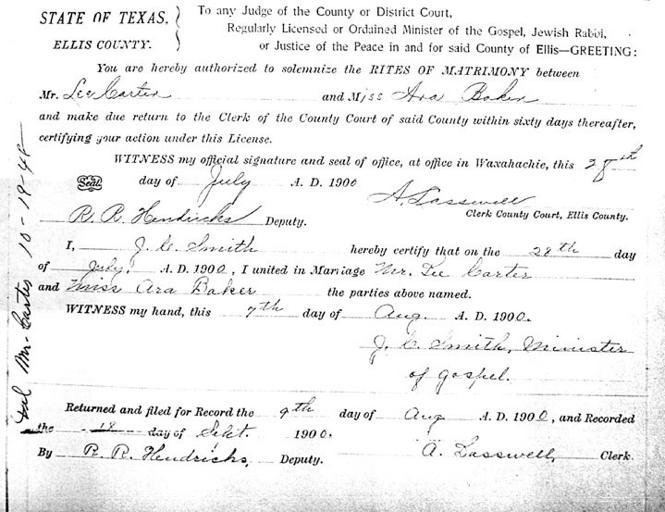 STATE OF TEXAS,
ELLIS COUNTY.
To any Judge of the County or District Court,
Regularly Licensed or Ordained Minister of the Gospel, Jewish Rabbi,
or Justice of the Peace in and for said County of Ellis—GREETING:
You are hereby authorized to solemnize the RITES OF MATRIMONY between
Mr. Lee Carter and Miss Ara Baker
and make due return to the Clerk of the County Court of said County within sixty days thereafter,
certifying your action under this License.
WITNESS my official signature and seal of office, at office in Waxahachie, this 28th
Seal day of July A. D. 1900
A. Lasswell
R. R. Hendricks Deputy. Clerk County Court, Ellis County.
I, J. C. Smith hereby certify that on the 28th day
of July. A. D. 1900, I united in Marriage Mr. Lee Carter
and Miss Ara Baker the parties above named.
WITNESS my hand, this 7th day of Aug. A. D. 1900.
J. C. Smith, Minister
of Gospel.
Returned and filed for Record the 9th day of Aug A. D. 1900, and Recorded
the 18 day of Sept. 1900.
By R. R. Hendricks, Deputy. A. Lasswell, Clerk.
Mr. Carter 10-19-48